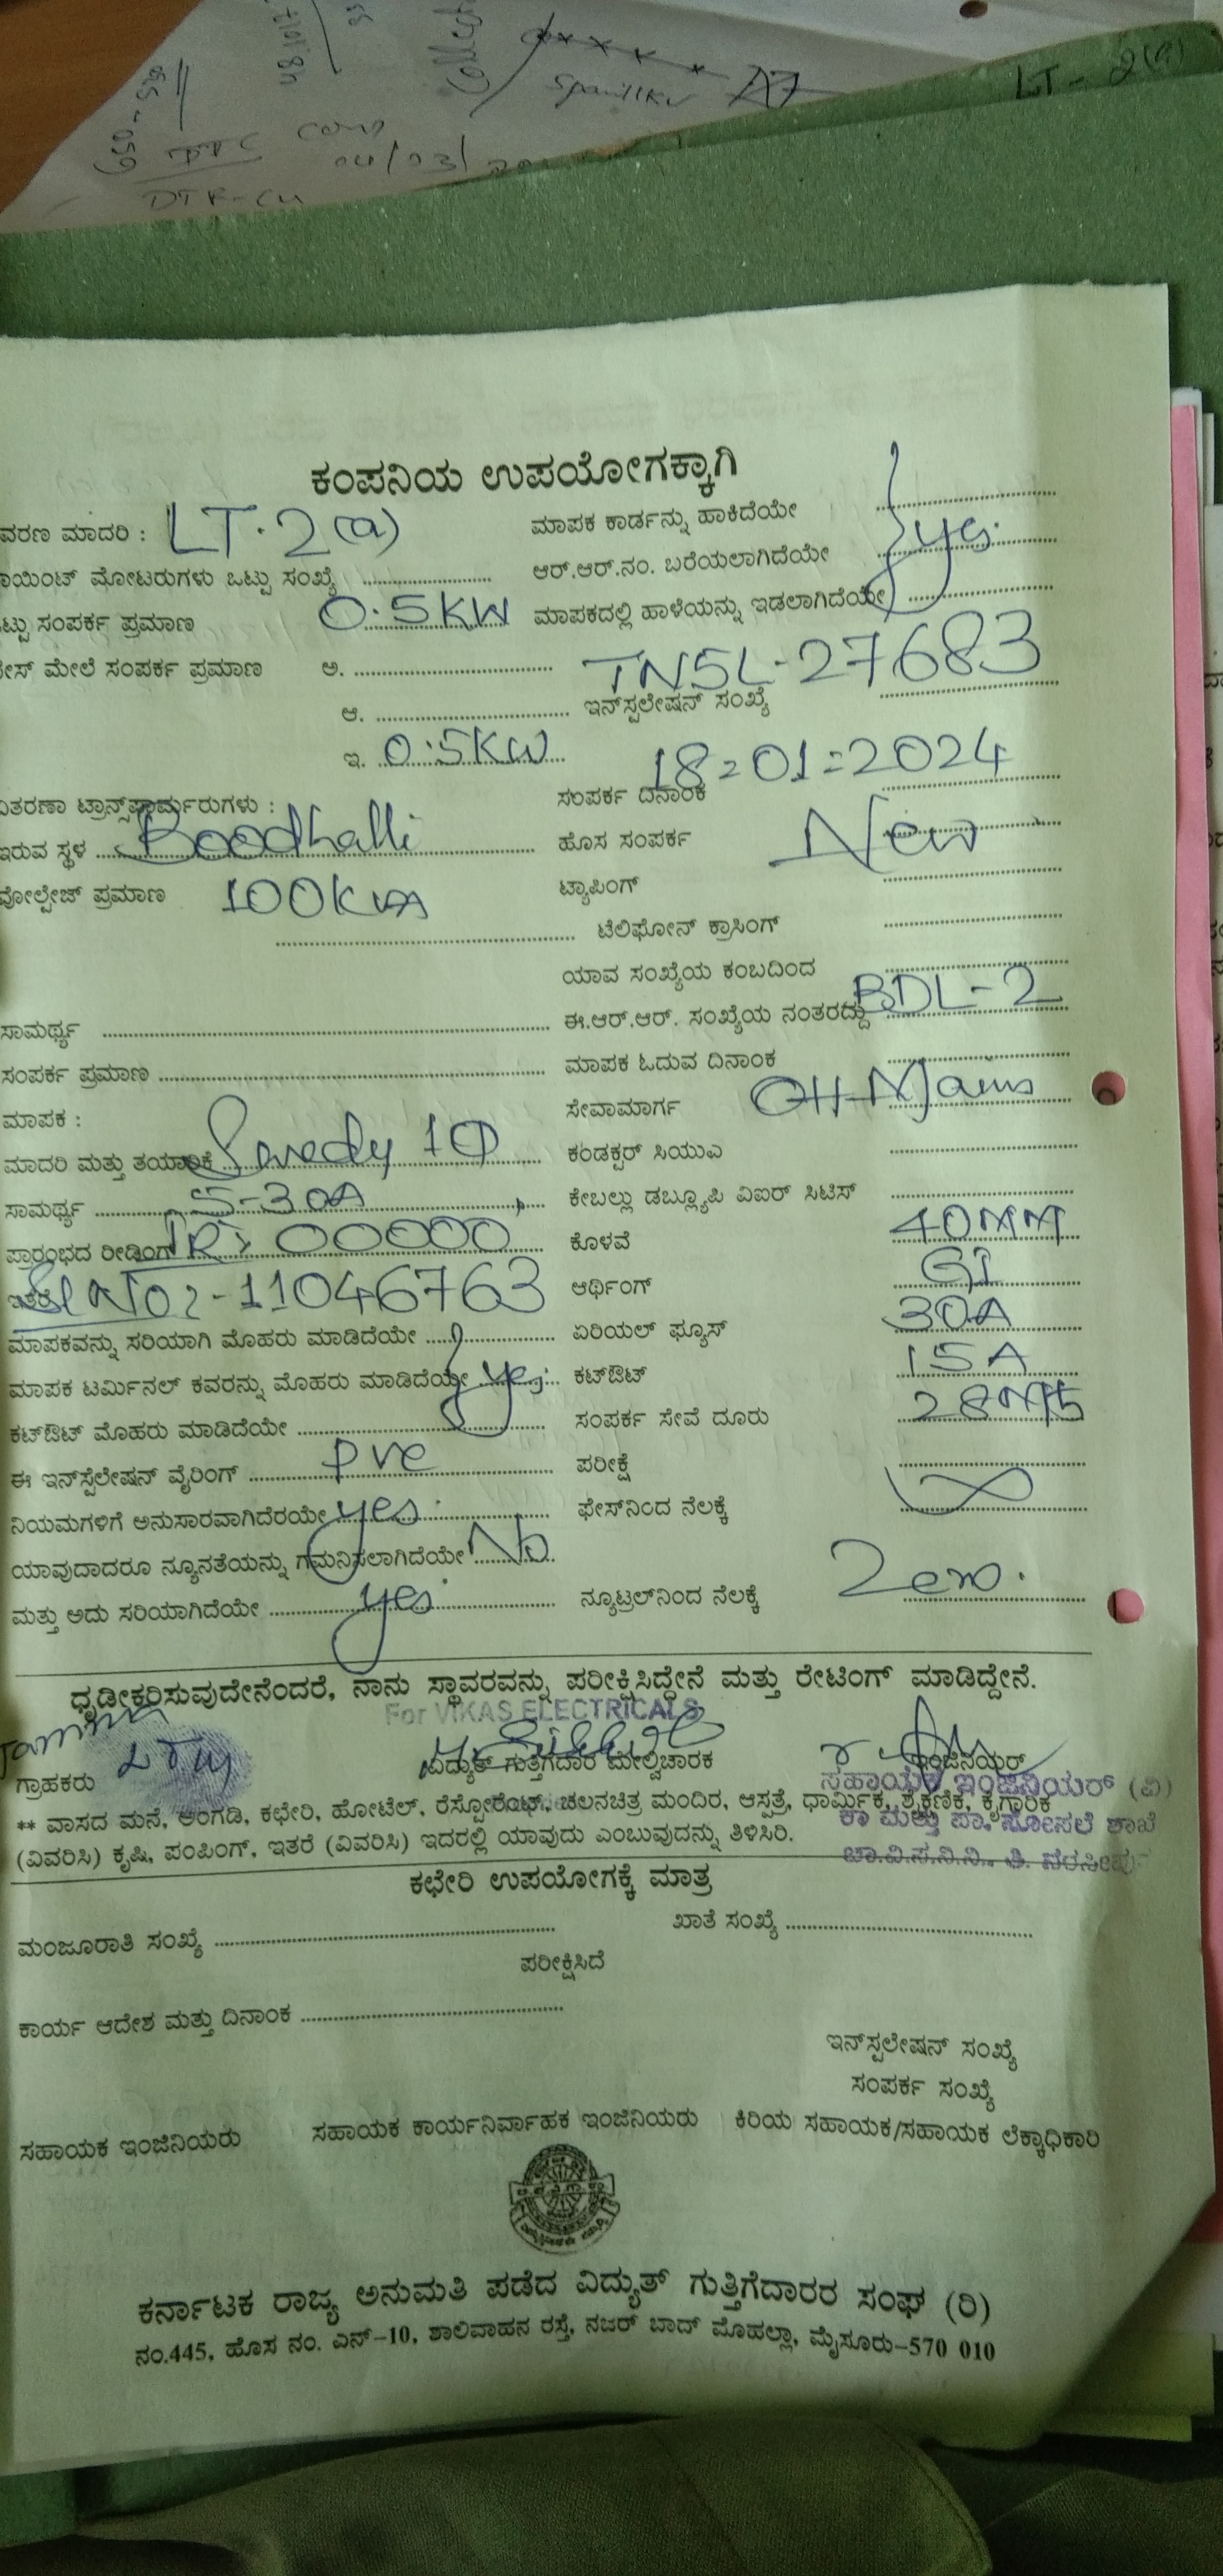 LT-2(a)
ಕಂಪನಿಯ ಉಪಯೋಗಕ್ಕಾಗಿ
ವರಣ ಮಾದರಿ : LT-2(a) ಮಾಪಕ ಕಾರ್ಡನ್ನು ಹಾಕಿದೆಯೇ
ಾಯಿಂಟ್ ಮೋಟರುಗಳು ಒಟ್ಟು ಸಂಖ್ಯೆ ಆರ್.ಆರ್.ನಂ. ಬರೆಯಲಾಗಿದೆಯೇ yes.
ಟ್ಟು ಸಂಪರ್ಕ ಪ್ರಮಾಣ 0.5KW ಮಾಪಕದಲ್ಲಿ ಹಾಳೆಯನ್ನು ಇಡಲಾಗಿದೆಯೇ
ೇಸ್ ಮೇಲೆ ಸಂಪರ್ಕ ಪ್ರಮಾಣ ಅ. TNSL-27683
ಆ. ಇನ್‌ಸ್ಪಲೇಷನ್ ಸಂಖ್ಯೆ
ಇ. 0.5KW 18=01=2024
ವಿತರಣಾ ಟ್ರಾನ್ಸ್‌ಫಾರ್ಮರುಗಳು : ಸಂಪರ್ಕ ದಿನಾಂಕ
ಇರುವ ಸ್ಥಳ Boodhalli ಹೊಸ ಸಂಪರ್ಕ New
ವೋಲ್ಟೇಜ್ ಪ್ರಮಾಣ 100KVA ಟ್ಯಾಪಿಂಗ್
ಟೆಲಿಫೋನ್ ಕ್ರಾಸಿಂಗ್
ಯಾವ ಸಂಖ್ಯೆಯ ಕಂಬದಿಂದ
ಸಾಮರ್ಥ್ಯ ಈ.ಆರ್.ಆರ್. ಸಂಖ್ಯೆಯ ನಂತರದ್ದು BDL-2
ಸಂಪರ್ಕ ಪ್ರಮಾಣ ಮಾಪಕ ಓದುವ ದಿನಾಂಕ
ಮಾಪಕ : ಸೇವಾಮಾರ್ಗ OH
ಮಾದರಿ ಮತ್ತು ತಯಾರಿಕೆ 1Φ ಕಂಡಕ್ಟರ್ ಸಿಯುಎ
ಸಾಮರ್ಥ್ಯ 5-30A ಕೇಬಲ್ಲು ಡಬ್ಲ್ಯೂಪಿ ವಿಐರ್ ಸಿಟಿಸ್
ಪ್ರಾರಂಭದ ರೀಡಿಂಗ್ IR> 00000 ಕೊಳವೆ 40MM
ಇತರೆ Sl No:-11046763 ಆರ್ಥಿಂಗ್ GI
ಮಾಪಕವನ್ನು ಸರಿಯಾಗಿ ಮೊಹರು ಮಾಡಿದೆಯೇ ಏರಿಯಲ್ ಫ್ಯೂಸ್ 30A
ಮಾಪಕ ಟರ್ಮಿನಲ್ ಕವರನ್ನು ಮೊಹರು ಮಾಡಿದೆಯೇ yes ಕಟ್‌ಔಟ್ 15A
ಕಟ್‌ಔಟ್ ಮೊಹರು ಮಾಡಿದೆಯೇ ಸಂಪರ್ಕ ಸೇವೆ ದೂರು
ಈ ಇನ್‌ಸ್ಟೆಲೇಷನ್ ವೈರಿಂಗ್ pvc ಪರೀಕ್ಷೆ
ನಿಯಮಗಳಿಗೆ ಅನುಸಾರವಾಗಿದೆರಯೇ yes. ಫೇಸ್‌ನಿಂದ ನೆಲಕ್ಕೆ ∞
ಯಾವುದಾದರೂ ನ್ಯೂನತೆಯನ್ನು ಗಮನಿಸಲಾಗಿದೆಯೇ No
ಮತ್ತು ಅದು ಸರಿಯಾಗಿದೆಯೇ yes ನ್ಯೂಟ್ರಲ್‌ನಿಂದ ನೆಲಕ್ಕೆ Zero.
ಧೃಡೀಕರಿಸುವುದೇನೆಂದರೆ, ನಾನು ಸ್ಥಾವರವನ್ನು ಪರೀಕ್ಷಿಸಿದ್ದೇನೆ ಮತ್ತು ರೇಟಿಂಗ್ ಮಾಡಿದ್ದೇನೆ.
For VIKAS ELECTRICALS
ಗ್ರಾಹಕರು ವಿದ್ಯುತ್ ಗುತ್ತಿಗೆದಾರ ಮೇಲ್ವಿಚಾರಕ ಇಂಜಿನಿಯರ್
ಸಹಾಯಕ ಇಂಜಿನಿಯರ್ (ವಿ)
** ವಾಸದ ಮನೆ, ಅಂಗಡಿ, ಕಛೇರಿ, ಹೋಟೆಲ್, ರೆಸ್ಟೋರೆಂಟ್, ಚಲನಚಿತ್ರ ಮಂದಿರ, ಆಸ್ಪತ್ರೆ, ಧಾರ್ಮಿಕ, ಶೈಕ್ಷಣಿಕ, ಕೈಗಾರಿಕ
ಕಾ ಮತ್ತು ಪಾ, ಸೋಸಲೆ ಶಾಖೆ
(ವಿವರಿಸಿ) ಕೃಷಿ, ಪಂಪಿಂಗ್, ಇತರೆ (ವಿವರಿಸಿ) ಇದರಲ್ಲಿ ಯಾವುದು ಎಂಬುವುದನ್ನು ತಿಳಿಸಿರಿ.
ಚಾ.ವಿ.ಸ.ನಿ.ನಿ., ತಿ. ನರಸೀಪುರ
ಕಛೇರಿ ಉಪಯೋಗಕ್ಕೆ ಮಾತ್ರ
ಮಂಜೂರಾತಿ ಸಂಖ್ಯೆ ಖಾತೆ ಸಂಖ್ಯೆ
ಪರೀಕ್ಷಿಸಿದೆ
ಕಾರ್ಯ ಆದೇಶ ಮತ್ತು ದಿನಾಂಕ
ಇನ್‌ಸ್ಪಲೇಷನ್ ಸಂಖ್ಯೆ
ಸಂಪರ್ಕ ಸಂಖ್ಯೆ
ಸಹಾಯಕ ಇಂಜಿನಿಯರು ಸಹಾಯಕ ಕಾರ್ಯನಿರ್ವಾಹಕ ಇಂಜಿನಿಯರು ಕಿರಿಯ ಸಹಾಯಕ/ಸಹಾಯಕ ಲೆಕ್ಕಾಧಿಕಾರಿ
ಕರ್ನಾಟಕ ರಾಜ್ಯ ಅನುಮತಿ ಪಡೆದ ವಿದ್ಯುತ್ ಗುತ್ತಿಗೆದಾರರ ಸಂಘ (ರಿ)
ನಂ.445, ಹೊಸ ನಂ. ಎನ್-10, ಶಾಲಿವಾಹನ ರಸ್ತೆ, ನಜರ್ ಬಾದ್ ಮೊಹಲ್ಲಾ, ಮೈಸೂರು-570 010